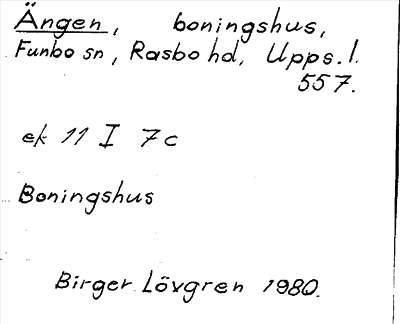 Ängen, boningshus,
Funbo sn, Rasbo hd, Upps. l.
557.
ek 11 I 7c
Boningshus
Birger Lövgren 1980.